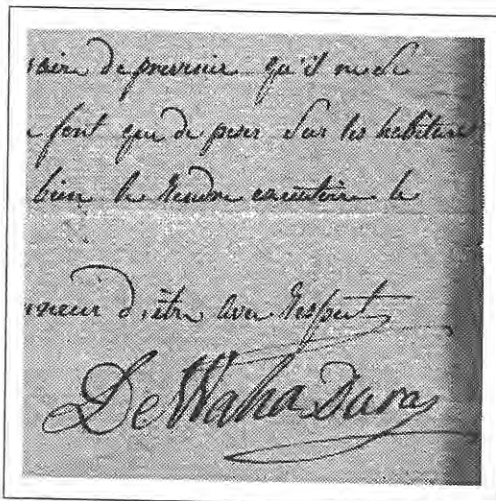 aire de prevenir qu'il ne se
font que de peser sur les habitans
bien le rendre executoire le
neur d'etre avec respect
De Waha Duras